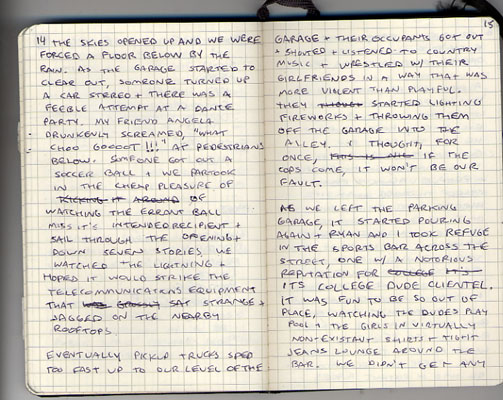 14 THE SKIES OPENED UP AND WE WERE
FORCED A FLOOR BELOW BY THE
RAIN. AS THE GARAGE STARTED TO
CLEAR OUT, SOMEONE TURNED UP
A CAR STEREO + THERE WAS A
FEEBLE ATTEMPT AT A DANCE
PARTY. MY FRIEND ANGELA
DRUNKENLY SCREAMED, "WHAT
CHOO GOOOOT !!!" AT PEDESTRIANS
BELOW. SOMEONE GOT OUT A
SOCCER BALL + WE PARTOOK
IN THE CHEAP PLEASURE OF
KICKING IT AROUND OF
WATCHING THE ERRANT BALL
MISS IT'S INTENDED RECIPIENT +
SAIL THROUGH THE OPENING +
DOWN SEVEN STORIES. WE
WATCHED THE LIGHTNING +
HOPED IT WOULD STRIKE THE
TELECOMMUNICATIONS EQUIPMENT
THAT SAT STRANGE +
JAGGED ON THE NEARBY
ROOFTOPS.
EVENTUALLY PICKUP TRUCKS SPED
TOO FAST UP TO OUR LEVEL OF THE
15
GARAGE + THEIR OCCUPANTS GOT OUT
+ SHOUTED + LISTENED TO COUNTRY
MUSIC + WRESTLED W/ THEIR
GIRLFRIENDS IN A WAY THAT WAS
MORE VIOLENT THAN PLAYFUL.
THEY STARTED LIGHTING
FIREWORKS + THROWING THEM
OFF THE GARAGE INTO THE
ALLEY. I THOUGHT, FOR
ONCE, IF THE
COPS COME, IT WON'T BE OUR
FAULT.
AS WE LEFT THE PARKING
GARAGE, IT STARTED POURING
AGAIN + RYAN AND I TOOK REFUGE
IN THE SPORTS BAR ACROSS THE
STREET, ONE W/ A NOTORIOUS
REPUTATION FOR COLLEGE IT'S
ITS COLLEGE DUDE CLIENTEL.
IT WAS FUN TO BE SO OUT OF
PLACE, WATCHING THE DUDES PLAY
POOL + THE GIRLS IN VIRTUALLY
NON-EXISTANT SHIRTS + TIGHT
JEANS LOUNGE AROUND THE
BAR. WE DIDN'T GET ANY